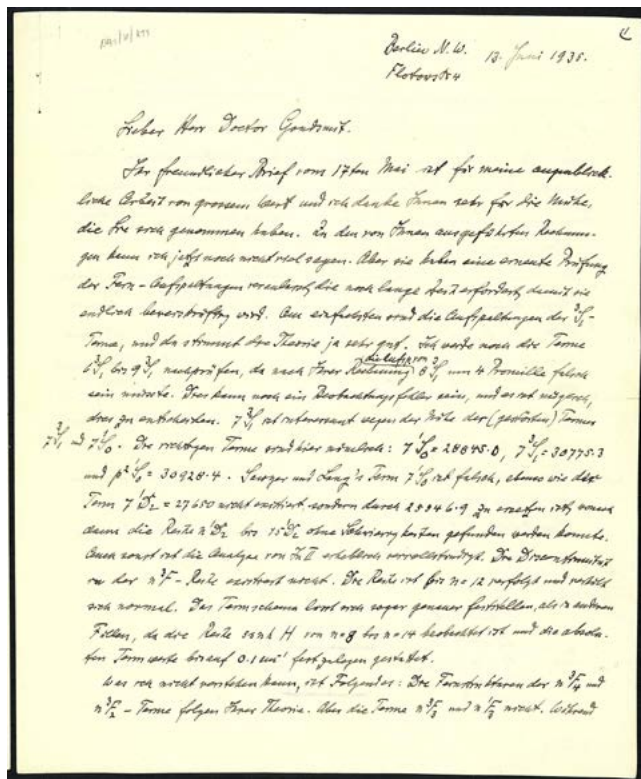 Berlin N.W. 13. Juni 1935.
Flotowstr 4
Lieber Herr Doctor Goudsmit.
Ihr freundlicher Brief vom 17ten Mai ist für meine augenblick-
liche Arbeit von grossem Wert und ich danke Ihnen sehr für die Mühe,
die Sie sich genommen haben. Zu den von Ihnen ausgeführten Rechnun-
gen kann ich jetzt noch nicht viel sagen. Aber sie haben eine erneute Prüfung
der Fein-Aufspaltungen veranlasst, die noch lange Zeit erfordert, damit sie
endlich wird. Am einfachsten sind die Aufspaltungen der ³S₁-
Terme, und da stimmt die Theorie ja sehr gut. Ich werde noch die Terme
6³S₁ bis 9³S₁ nachprüfen, da nach Ihrer Rechnung die Aufsp. von 8³S₁ um 4 Promille falsch
sein müsste. Dies kann noch ein Beobachtungsfehler sein, und es ist möglich,
dies zu entscheiden. 7³S₁ ist interessant wegen der Nähe der (gestörten) Terme
7³S₁ und 7¹S₀. Die richtigen Terme sind hier nämlich: 7¹S₀ = 28845.0, 7³S₁ = 30775.3
und p² ¹S₀ = 30928.4. Sawyer und Lang's Term 7¹S₀ ist falsch, ebenso wie der
Term 7¹D₂ = 27650 nicht existiert sondern durch 25846.9 zu ersetzen ist, wonach
dann die Reihe n¹D₂ bis 15¹D₂ ohne Schwierigkeiten gefunden werden konnte.
Auch sonst ist die Analyse von In II erheblich vervollständigt. Die Discontinuität
in der n³F-Reihe existiert nicht. Die Reihe ist bis n=12 verfolgt und verhält
sich normal. Das Termschema lässt sich sogar genauer feststellen, als in anderen
Fällen, da die Reihe H von n=8 bis n=14 beobachtet ist und die absolu-
ten Termwerte bis auf 0.1 cm⁻¹ festzulegen gestattet.
Was ich nicht verstehen kann, ist Folgendes: Die Feinstrukturen der n³F₄ und
n³F₂-Terme folgen Ihrer Theorie. Aber die Terme n³F₃ und n¹F₃ nicht. Während